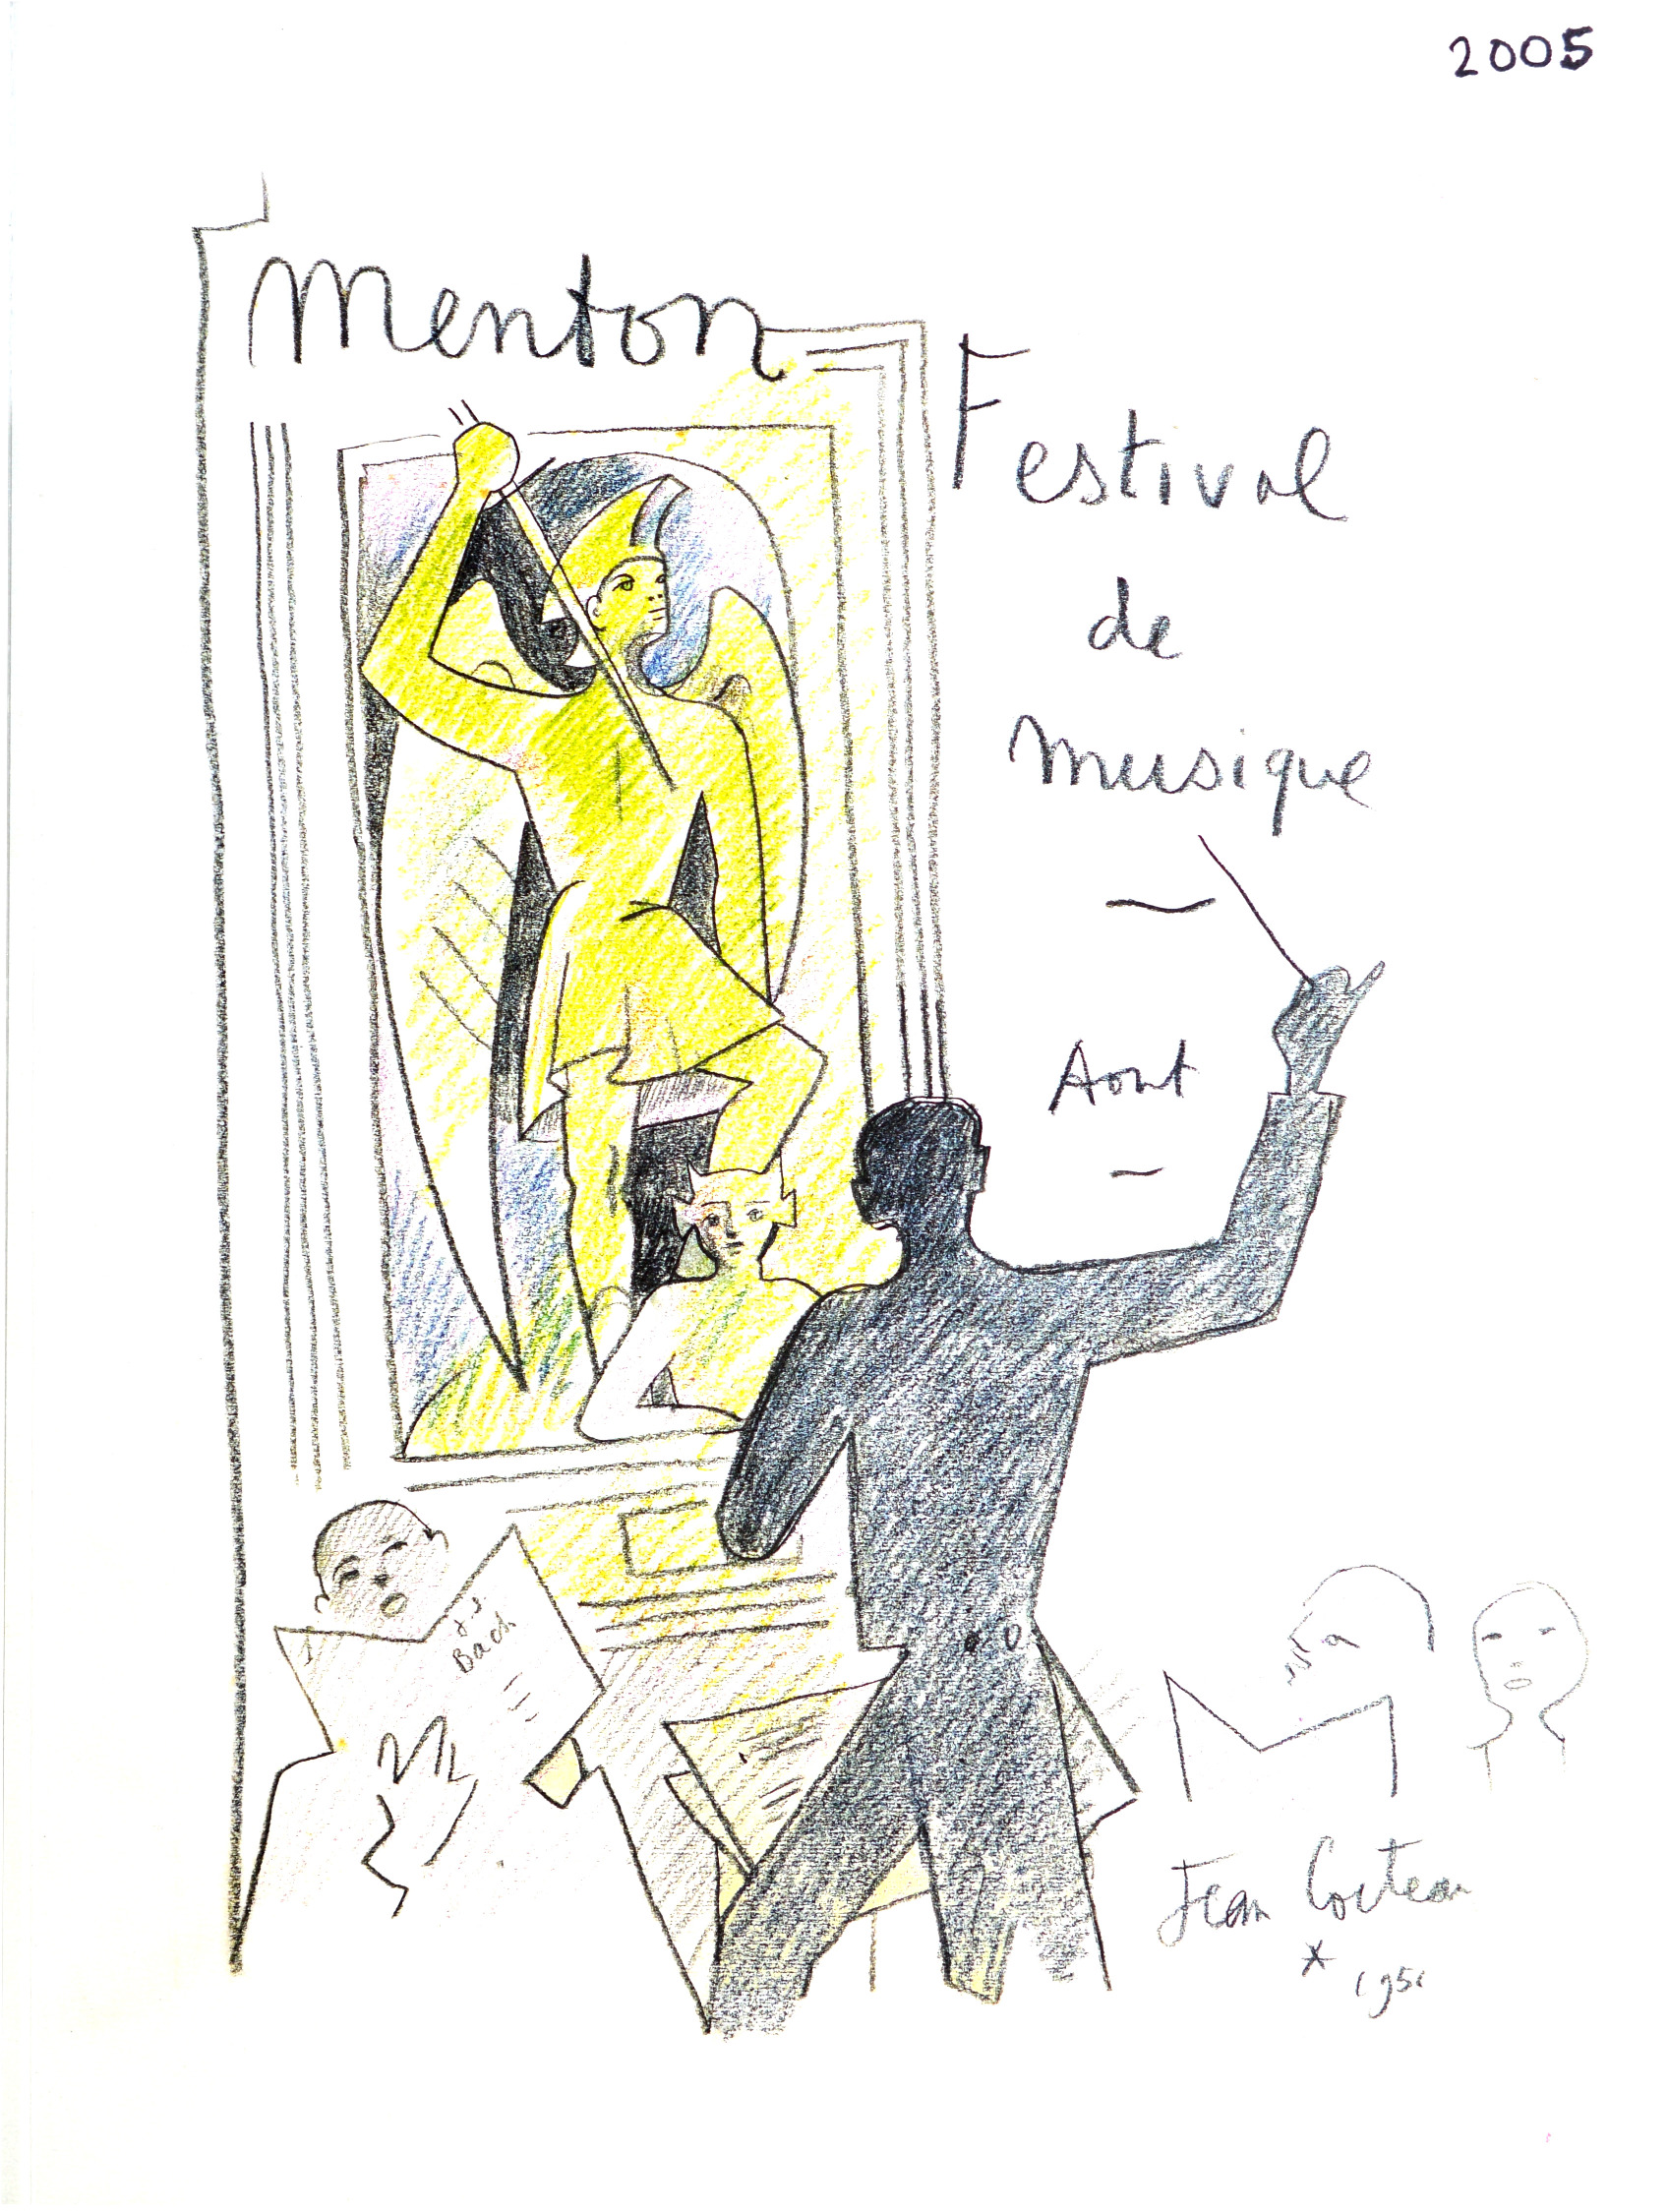 2005
Menton
Festival
de
musique
Aout
J.S.
Bach
Jean Cocteau
* 1951